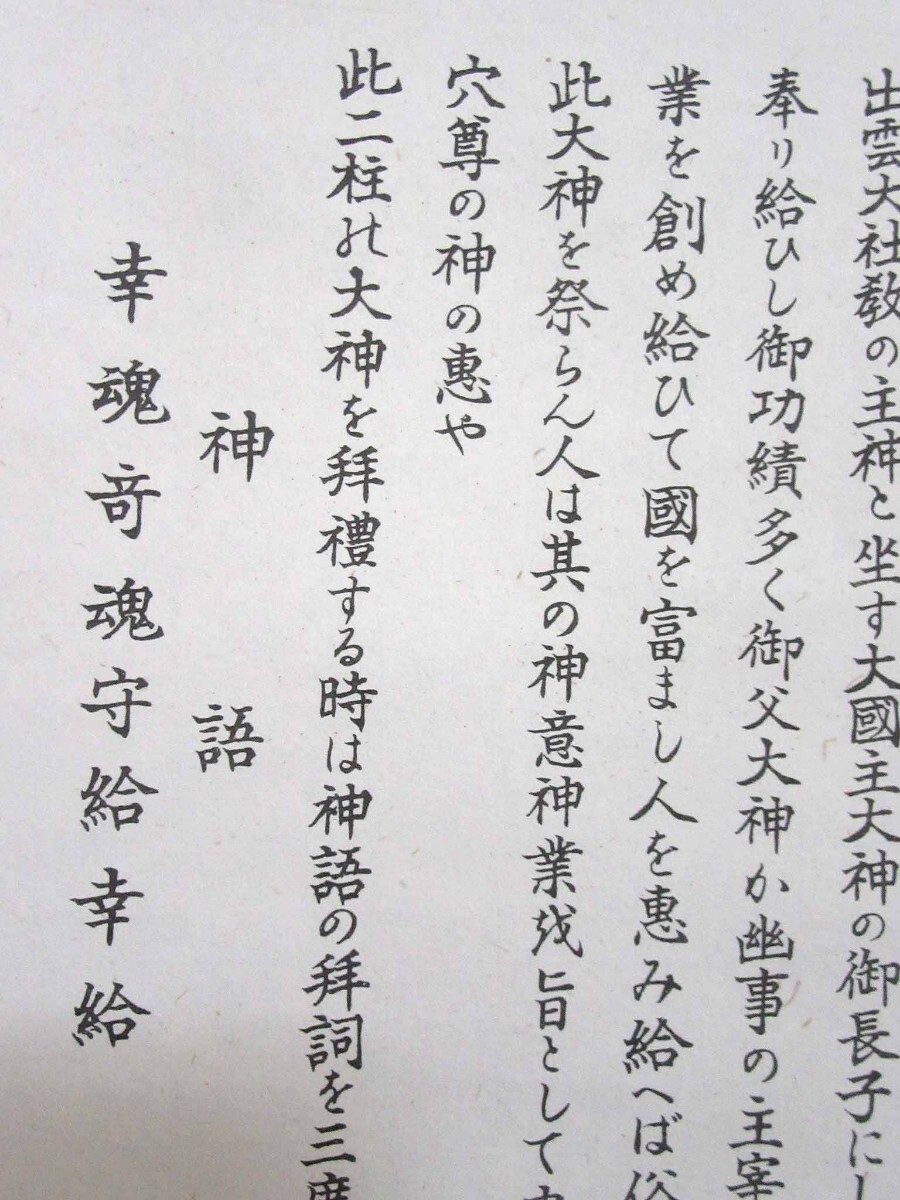 出雲大社教の主神と坐す大國主大神の御長子にし
奉り給ひし御功績多く御父大神か幽事の主宰
業を創め給ひて國を富まし人を惠み給へば俗
此大神を祭らん人は其の神意神業越旨として
穴尊の神の惠や
此二柱乃大神を拜禮する時は神語の拜詞を三度
神語
幸魂竒魂守給幸給